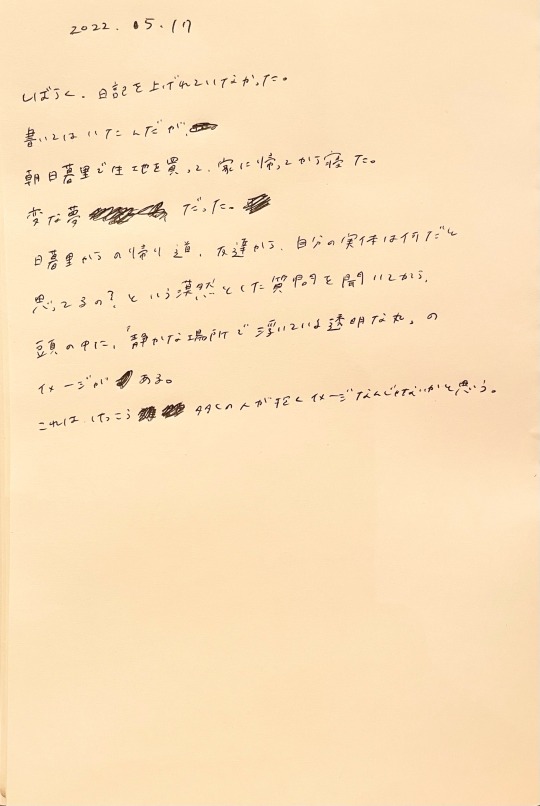 2022.05.17
しばらく、日記を上げれていなかった。
書いてはいたんだが、
朝日暮里で生地を買って、家に帰ってから寝た。
変な夢だった。
日暮里からの帰り道、友達から、自分の実体は何だと
思ってるの？という漠然とした質問を聞いてから、
頭の中に、「静かな場所で浮いている透明な丸」の
イメージがある。
これは、けっこう多くの人が抱くイメージなんじゃないかと思う。